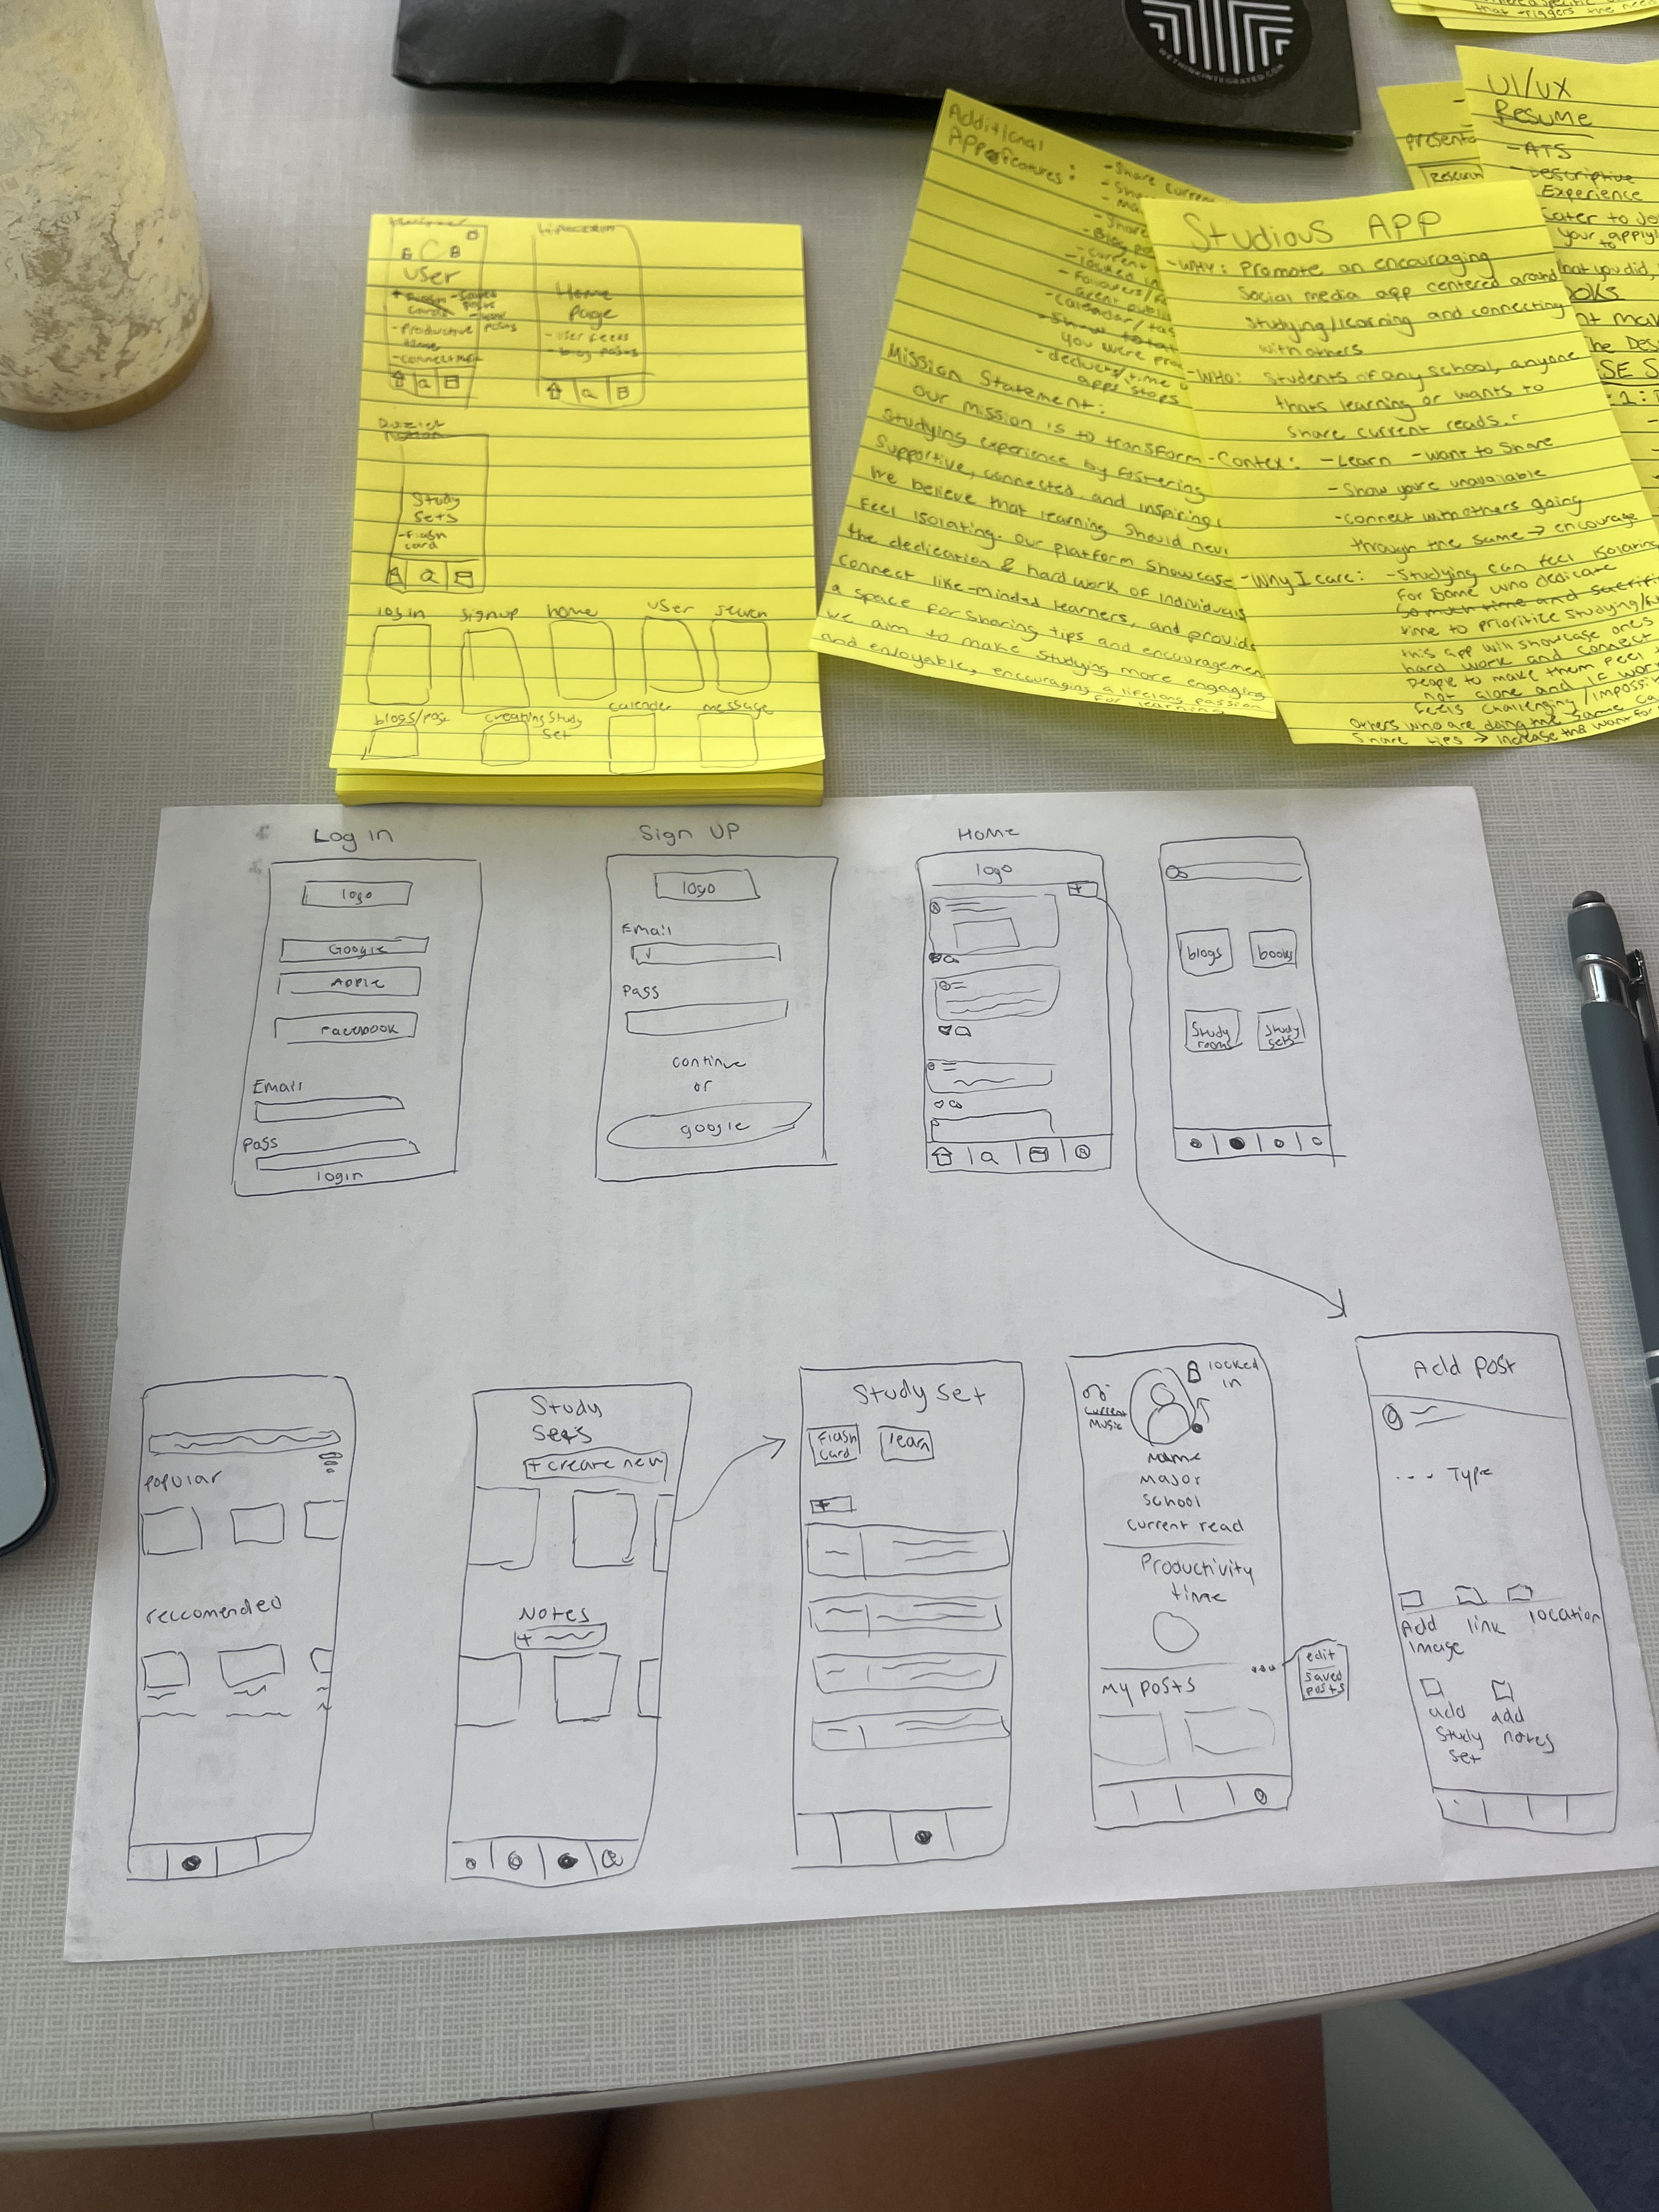 WETHINKINTEGRATED.COM
that triggers the need
UI/UX
Resume
-ATS
Descriptive
Experience
your applyi
to
Additional
App features:
-Share current
Mission Statement:
our mission is to transform
studying experience by fostering
supportive, connected, and inspiring
we believe that learning should nev
feel isolating. our platform showcase
the dedication & hard work of individuals
connect like-minded learners, and provid
a space for sharing tips and encouragemen
we aim to make studying more engaging
and enjoyable, encouraging a lifelong passion
for learning
Studious APP
-WHY: Promote an encouraging
social media app centered around
studying/learning and connecting
with others
-WHO: Students of any school, anyone
thats learning or wants to
share current reads.
-Contex: -Learn -want to share
-Show you're unavailable
-connect with others going
through the same → encourage
-Why I care: -Studying can feel isolating
for some who dedicate
so much time and
time to prioritize studying/
this app will showcase ones
hard work and connect
people to make them feel
not alone and if work
feels challenging/impossi
others who are doing the same can
share tips → increase the want for
User
-Productive
time
-connect
Home
Page
-user feeds
-blog posts
Study
Sets
-Flash
card
log in
signup
home
user
search
blogs/post
creating study
set
calender
message
Log in
logo
Google
Apple
Facebook
Email
Pass
login
Sign UP
logo
Email
Pass
continue
or
google
Home
logo
+
blogs
books
Study
rooms
Study
sets
popular
reccomended
Study
Sets
+create new
Notes
+
Study set
Flash
card
learn
+
locked
in
current
music
name
major
school
current read
Productivity
time
my posts
edit
saved
posts
Add post
--- Type
Add
image
link
location
add
study
set
add
notes